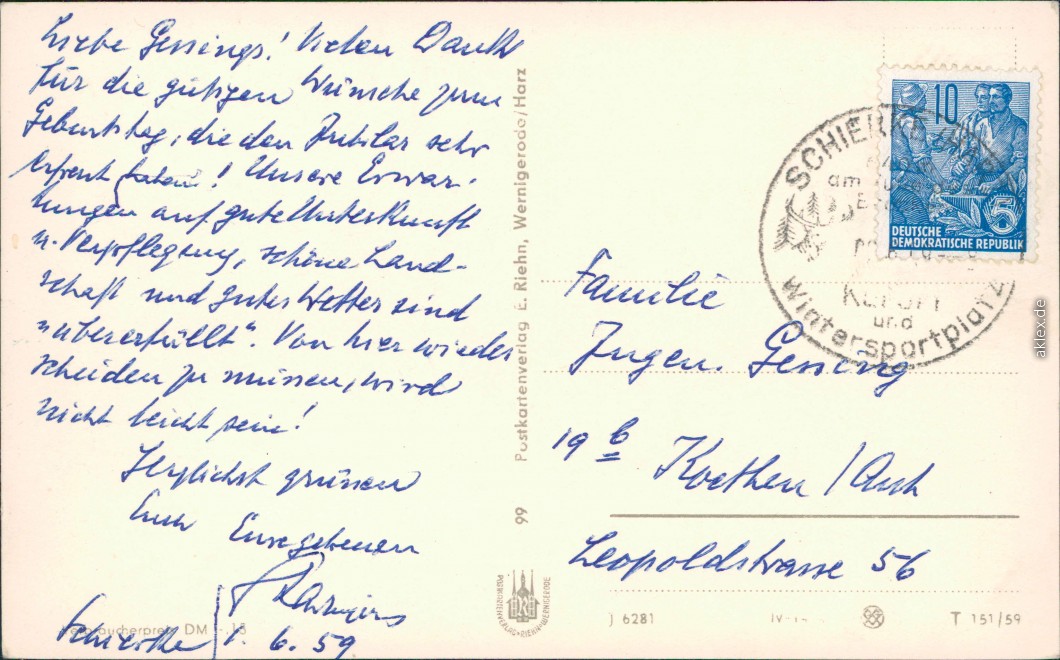 Liebe Gessings! Vielen Dank
für die gütigen Wünsche zum
Geburtstag, die den Jubilar sehr
erfreut haben! Unsere Erwar-
tungen auf gute Unterkunft
u. Verpflegung, schöne Land-
schaft und gutes Wetter sind
"übererfüllt". Von hier wieder
scheiden zu müssen, wird
nicht leicht sein!
Herzlichst grüssen
Euch
Eure gebenen
Schierke 1. 6. 59
Verbraucherpreis DM -.15
99 Postkartenverlag E. Riehn, Wernigerode/Harz
POSTKARTENVERLAG · RIEHN · WERNIGERODE
10
5
DEUTSCHE
DEMOKRATISCHE REPUBLIK
SCHIERKE
am
Kurort
und
Wintersportplatz
Familie
Ingen. Gessing
19 b Koethen/Anh
Leopoldstrasse 56
J 6281 IV-14 T 151/59
aklex.de